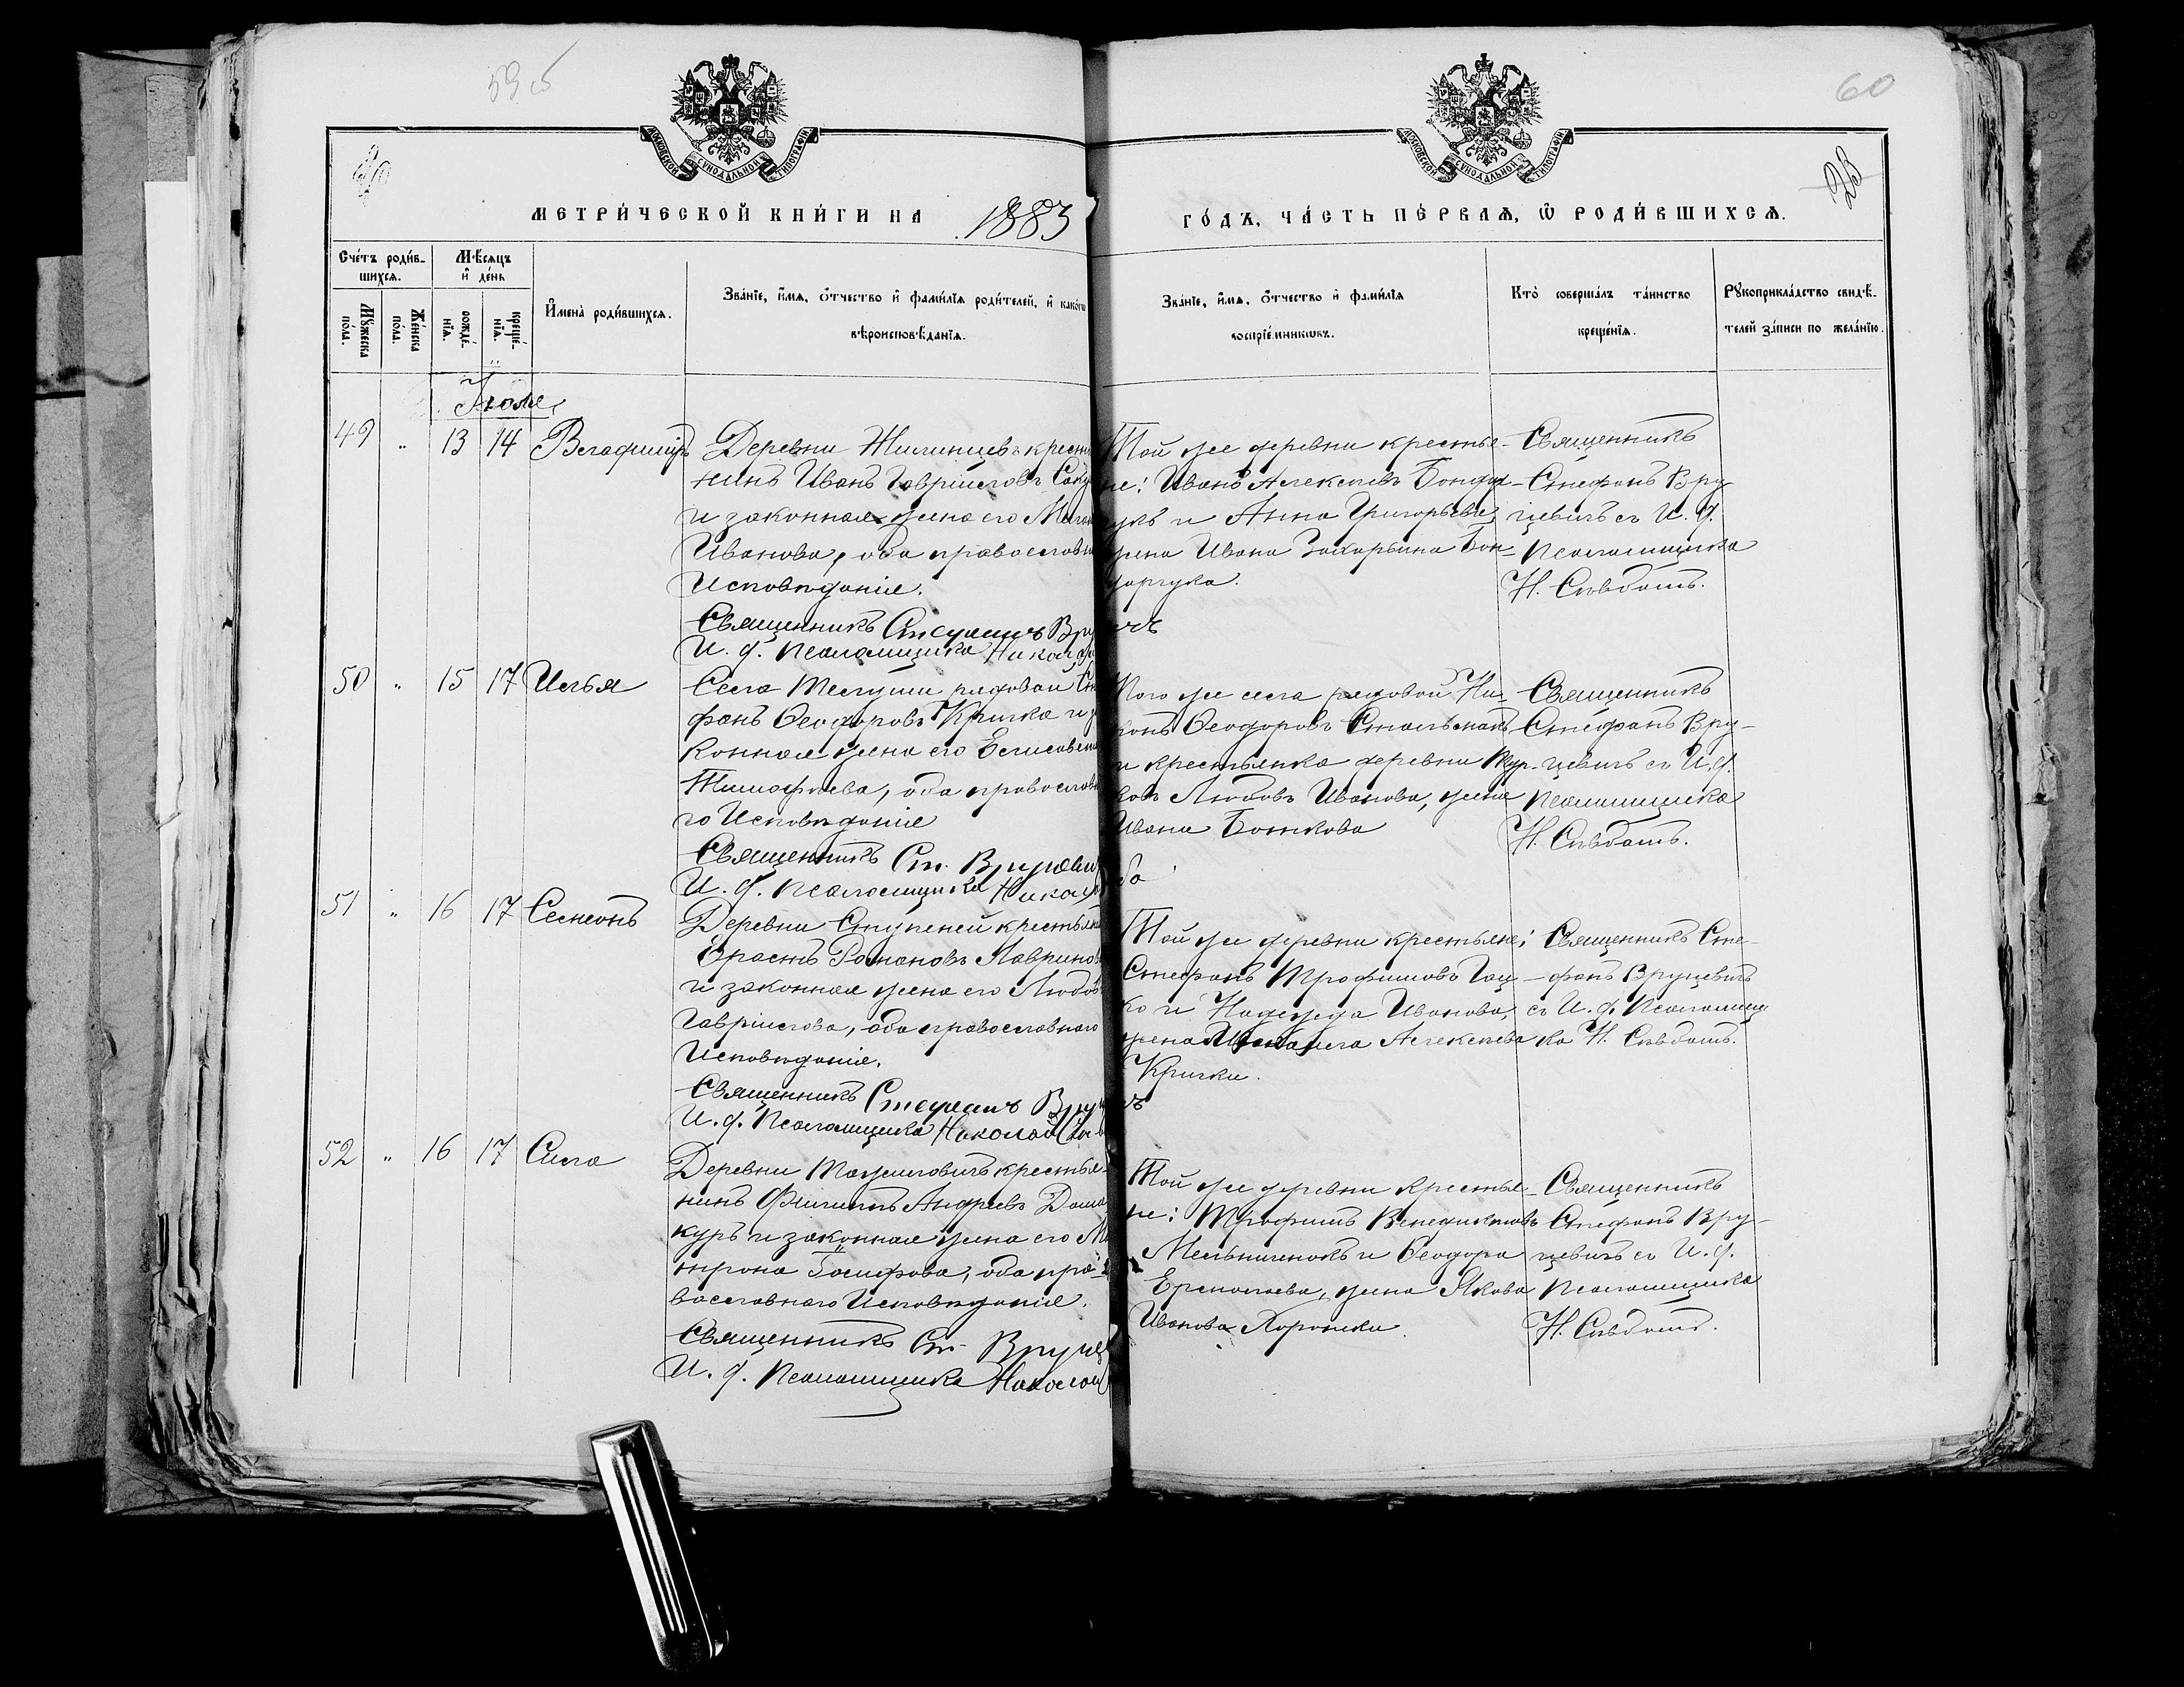 59 об
60
МОСКОВСКОЙ СУНОДАЛЬНОЙ ТИПОГРАФІИ
МОСКОВСКОЙ СУНОДАЛЬНОЙ ТИПОГРАФІИ
28
МЕТРИ́ЧЕСКОЙ КНИ́ГИ НА 1883 ГО́ДЪ, ЧА́СТЬ ПЕ́РВАѦ, Ѽ РОДИ́ВШИХСѦ.
Сче́тъ роди́в-
шихсѧ.
Мѣ́сяцъ
и҆ де́нь
Мꙋ́жеска
по́ла.
Же́нска
по́ла.
рожде́-
нїѧ.
креще́-
нїѧ.
И҆мена̀ роди́вшихсѧ.
Зва́нїе, и҆́мѧ, ѻ҆́тчество и҆ фами́лїѧ роди́телей, и҆ како́гѡ
вѣроисповѣ́данїѧ.
Зва́нїе, и҆́мѧ, ѻ҆́тчество и҆ фами́лїѧ
воспрїе́мникѡвъ.
Кто̀ соверша́лъ та́инство
креще́нїѧ.
Рꙋкоприкла́дство свидѣ́-
телей за́писи по жела́нїю.
Іюля
49 " 13 14 Владиміръ
Деревни Жилинцевъ крестья
нинъ Иванъ Гавріиловъ
и законная жена его
Иванова, оба православн
Исповѣданіе.
Священникъ Стефанъ Вру
И. д. Псаломщика Никола
Той же деревни крестья-
не: Иванъ Алексѣевъ Бонда
укъ и Анна Григорьева,
жена Ивана Захарьина Бон-
дарчука.
ичъ
Священникъ
Стефанъ Вру
цевичъ съ И. д.
Псаломщика
Н. Сѣвбатъ.
50 " 15 17 Илья
Села Телуши рядовой Сте
фанъ Ѳеодоровъ Кричка и за
конная жена его Елисавета
Тимофѣева, оба православн
го Исповѣданіе
Священникъ Ст. Вруцеви
И. д. Псаломщика Никола
Того же села рядовой Ни-
конъ Ѳеодоровъ Стальмакъ
и крестьянка деревни
ковъ Любовь Иванова, жена
Ивана Божкова
ба
Священникъ
Стефанъ Вру-
цевичъ съ И. д.
Псаломщика
Н. Сѣвбатъ.
51 " 16 17 Сѵмеонъ
Деревни Ступеней крестьян
Ерастъ Романовъ Лавринов
и законная жена его Любовь
Гавріилова, оба православнаго
Исповѣданіе.
Священникъ Стефанъ Вру
И. д. Псаломщика Николай
Той же деревни крестьяне:
Стефанъ Трофимовъ Гац-
ко и Надежда Иванова,
жена Алексѣева
Крички.
чъ
Священникъ Сте-
фанъ Вруцевичъ
съ И. д. Псаломщи
ка Н. Сѣвбатъ.
52 " 16 17 Сила
Деревни крестья-
нинъ Филиппъ Андреевъ Дома
куръ и законная жена его Ма
трона Іосифова, оба пра-
вославнаго Исповѣданіе.
Священникъ Ст. Вруце
И. д. Псаломщика Николай
Той же деревни Крестья-
не: Трофимъ Венедиктовъ
Мельниченокъ и Ѳеодора
Ермолаева, жена Якова
Иванова Хорошки.
Священникъ
Стефанъ Вру-
цевичъ съ И. д.
Псаломщика
Н. Сѣвбатъ.